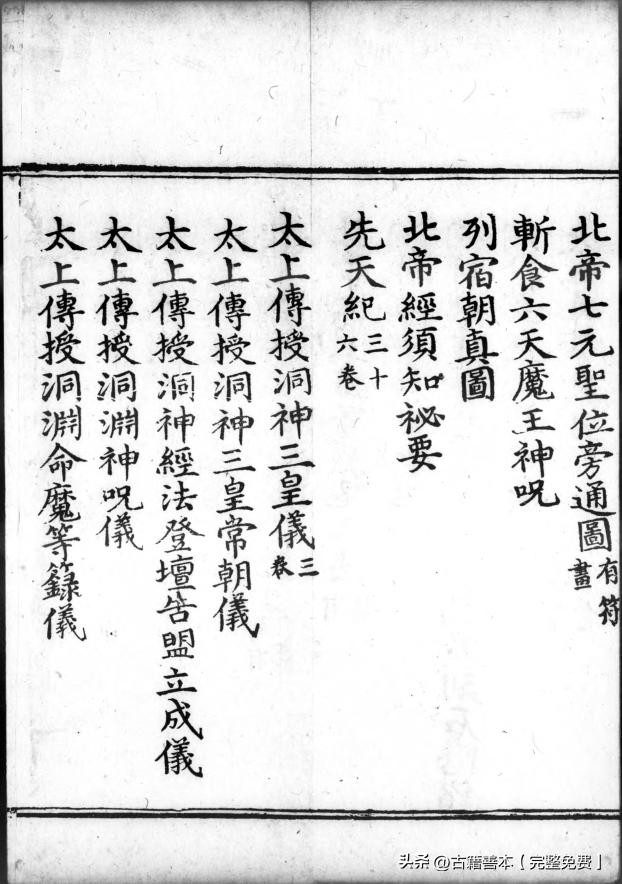 北帝七元聖位旁通圖有符畫
斬食六天魔王神呪
列宿朝真圖
北帝經須知祕要
先天紀三十六卷
太上傳授洞神三皇儀三卷
太上傳授洞神三皇常朝儀
太上傳授洞神經法登壇告盟立成儀
太上傳授洞淵神呪儀
太上傳授洞淵命魔等籙儀
头条 @古籍善本【完整免费】